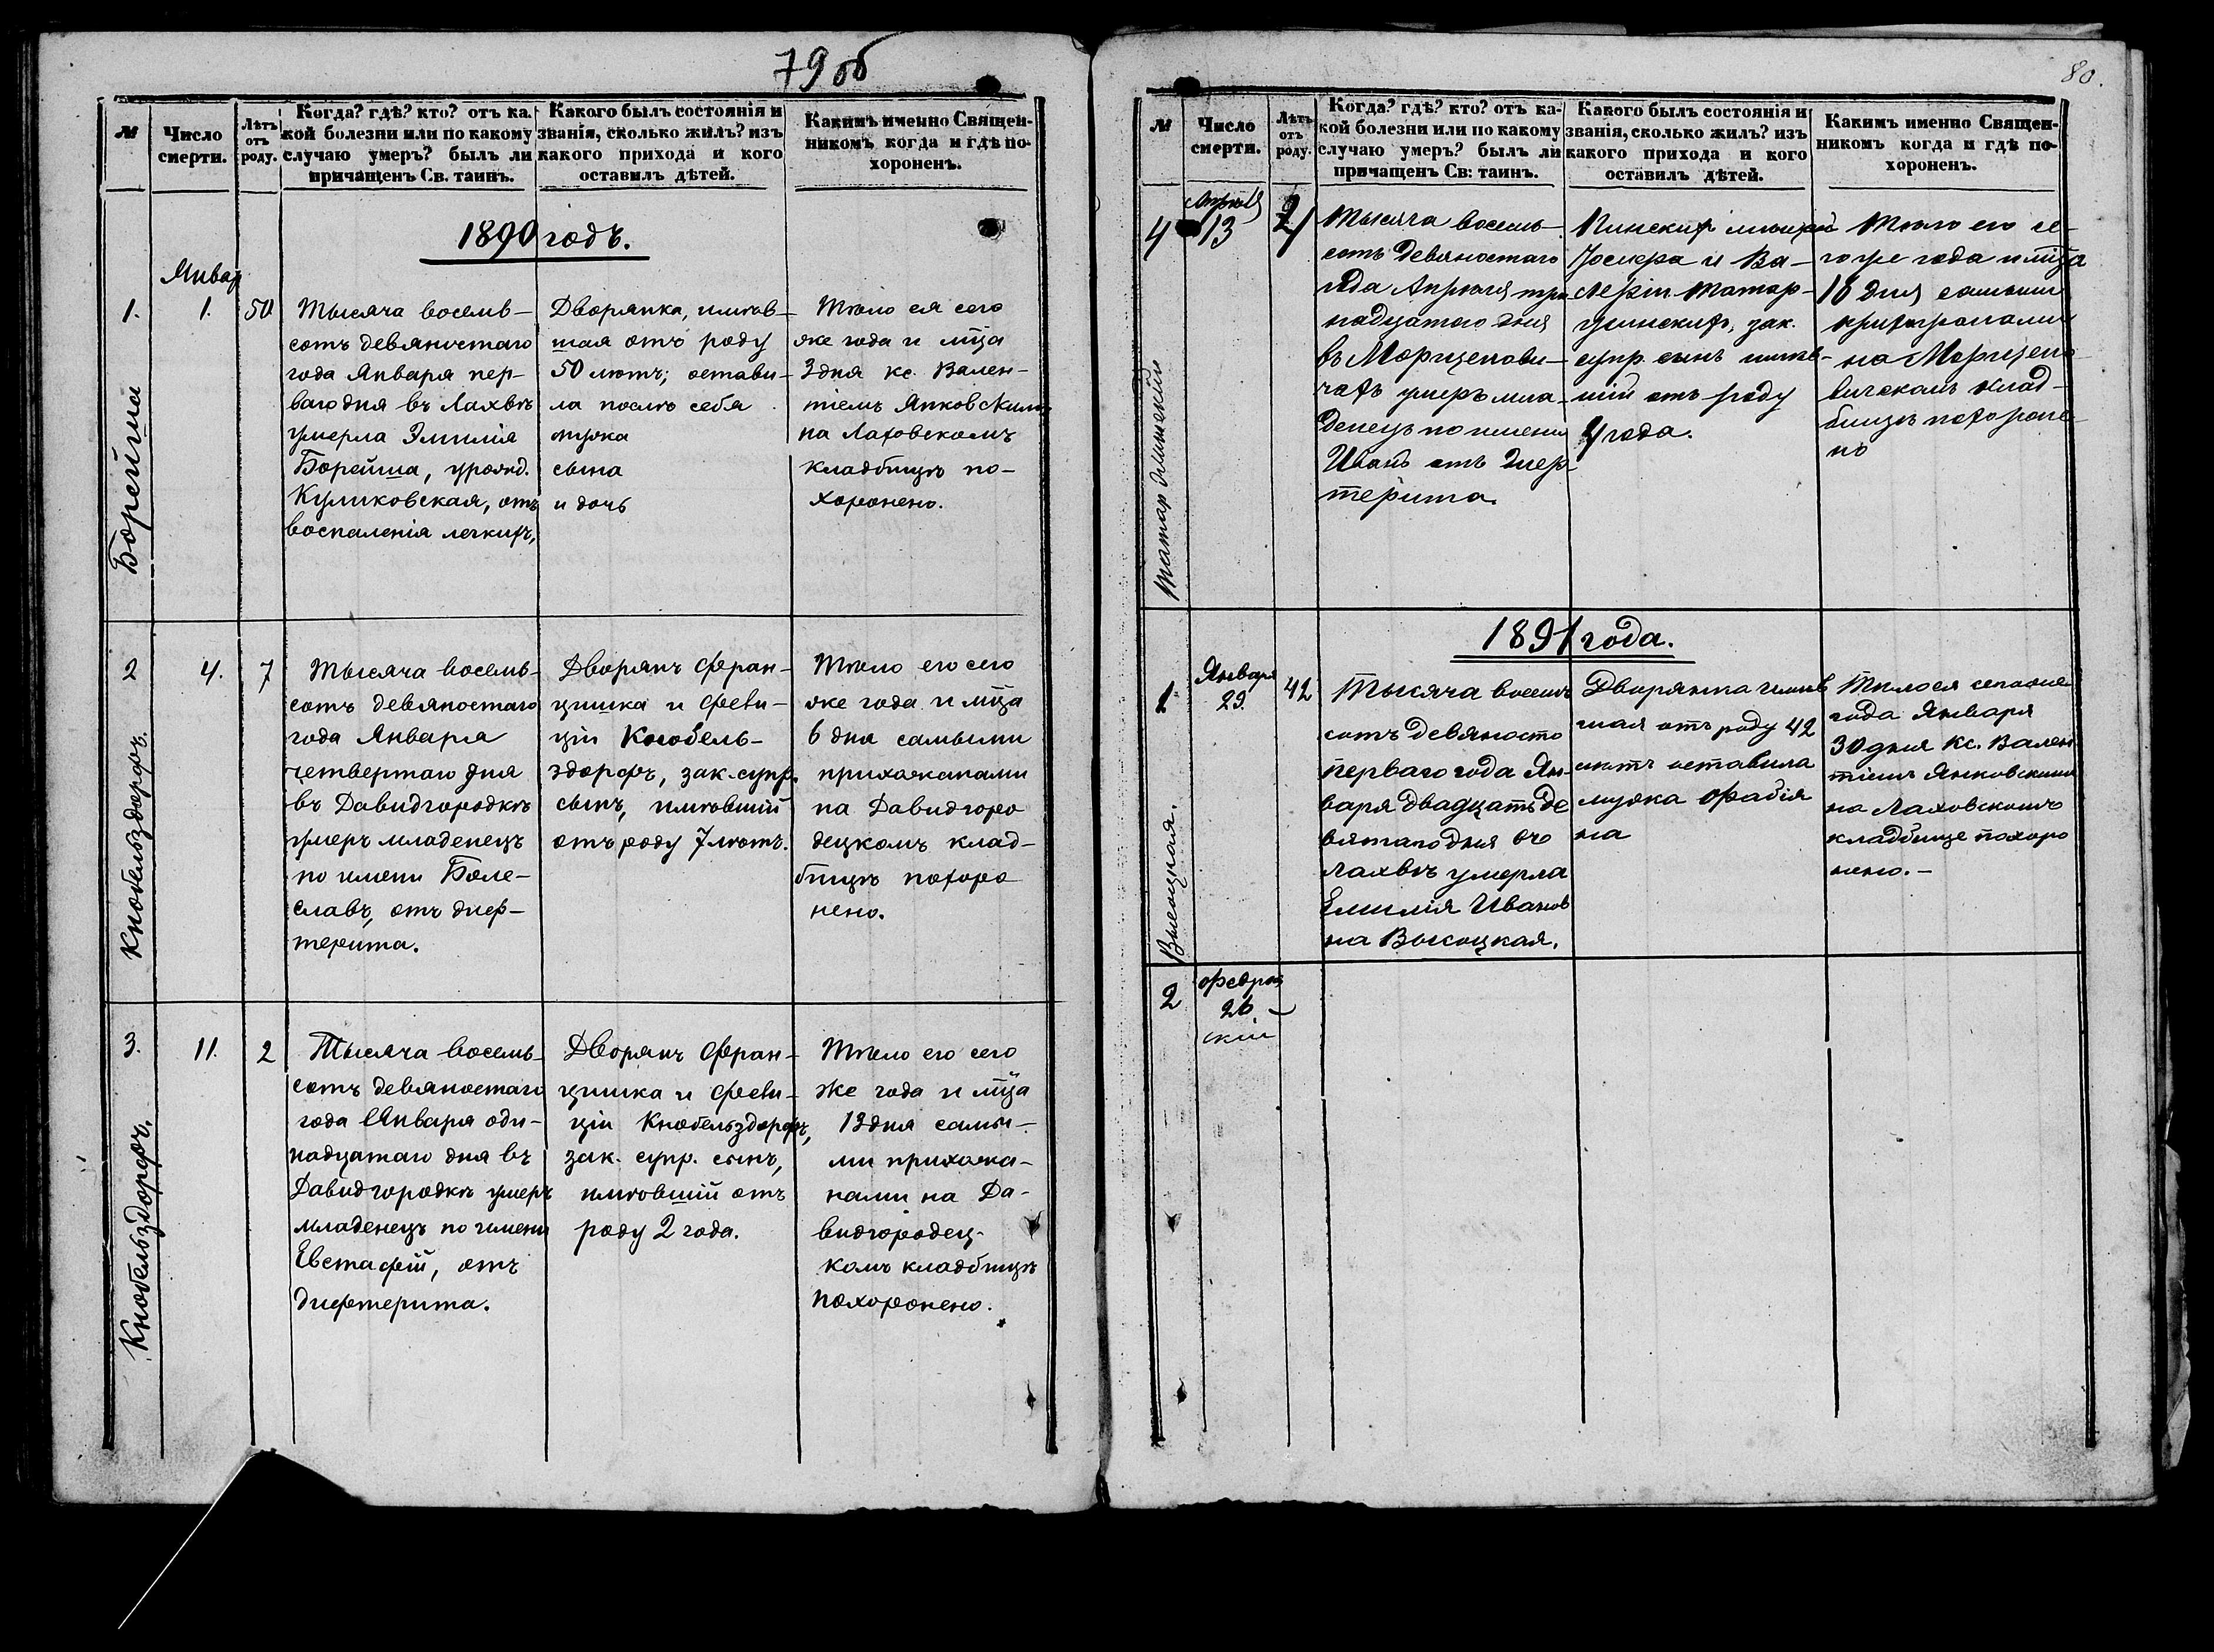 79 об
№
Число
смерти.
Лѣтъ
отъ
роду.
Когда? гдѣ? кто? отъ ка-
кой болезни или по какому
случаю умеръ? былъ ли
причащенъ Св. таинъ.
Какого былъ состоянія и
званія, сколько жилъ? изъ
какого прихода и кого
оставилъ дѣтей.
Какимъ именно Священ-
никомъ когда и гдѣ по-
хороненъ.
1890 годъ.
Январ
1.
1.
50
Борейша
Тысяча восемь-
сотъ девяностаго
года Января пер-
ваго дня въ Лахвѣ
умерла Эмилія
Борейша, урожд.
Куликовская, отъ
воспаленія легкихъ,
Дворянка, имѣв-
шая отъ роду
50 лѣтъ; остави-
ла послѣ себя
мужа
сына
и дочь
Тѣло ея сего
же года и мца
3 дня кс. Вален-
тіемъ Янковскимъ
на Лаховскомъ
кладбищѣ по-
хоронено.
2
4.
7
Кнобельздорфъ.
Тысяча восемь-
сотъ девяностаго
года Января
четвертаго дня
въ Давидгородкѣ
умеръ младенецъ
по имени Боле-
славъ, отъ диф-
терита.
Дворянъ Фран-
цишка и Фели-
ціи Кнобель-
здорфъ, зак. супр.
сынъ, имѣвшій
отъ роду 7 лѣтъ.
Тѣло его сего
же года и мца
6 дня самыми
прихожанами
на Давидгоро
децкомъ клад-
бищѣ похоро
нено.
3.
11.
2
Кнобельздорфъ.
Тысяча восемь-
сотъ девяностаго
года Января оди-
надцатаго дня въ
Давидгородкѣ умеръ
младенецъ по имени
Евстафій, отъ
дифтерита.
Дворянъ Фран-
цишка и Фели-
ціи Кнобельздорфъ,
зак. супр. сынъ,
имѣвшій отъ
роду 2 года.
Тѣло его сего
же года и мца
13 дня самы-
ми прихожа-
нами на Да-
видгородец-
комъ кладбищѣ
похоронено.
80.
№
Число
смерти.
Лѣтъ
отъ
роду.
Когда? гдѣ? кто? отъ ка-
кой болезни или по какому
случаю умеръ? былъ ли
причащенъ Св: таинъ.
Какого былъ состоянія и
званія, сколько жилъ? изъ
какого прихода и кого
оставилъ дѣтей.
Какимъ именно Священ-
никомъ когда и гдѣ по-
хороненъ.
4
13
Тысяча восемь-
сотъ девяностаго
года Апрѣля три
надцатаго дня
умеръ мла-
денецъ по имени
Иванъ отъ диф
терита.
Пинскихъ
и Ва-
леріи Татар-
зак.
супр. сынъ имѣв-
шій отъ роду
года.
Тѣло его се-
го же года и мца
16 дня самыми
прихожанами
на
клад-
бищѣ похороне
но
1891 года.
1.
Января
29.
42
Высоцкая.
Тысяча восемь
сотъ девяносто
перваго года Ян-
варя двадцать де
вятаго дня въ
Лахвѣ умерла
Емилія Иванов
на Высоцкая.
Дворянка имѣв
шая отъ роду 42
лѣтъ оставила
мужа Фабія
на
Тѣло ея сего же
года Января
30 дня Кс. Вален
тіемъ Янковскимъ
на Лаховскомъ
кладбище похоро
нено.-
2
26
скій